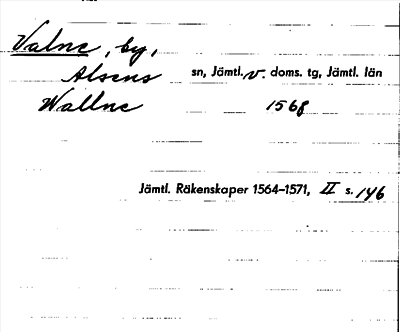 Valne, by,
Alsens sn, Jämtl. v. doms. tg, Jämtl. län
Wallne 1568
Jämtl. Räkenskaper 1564–1571, II s. 146